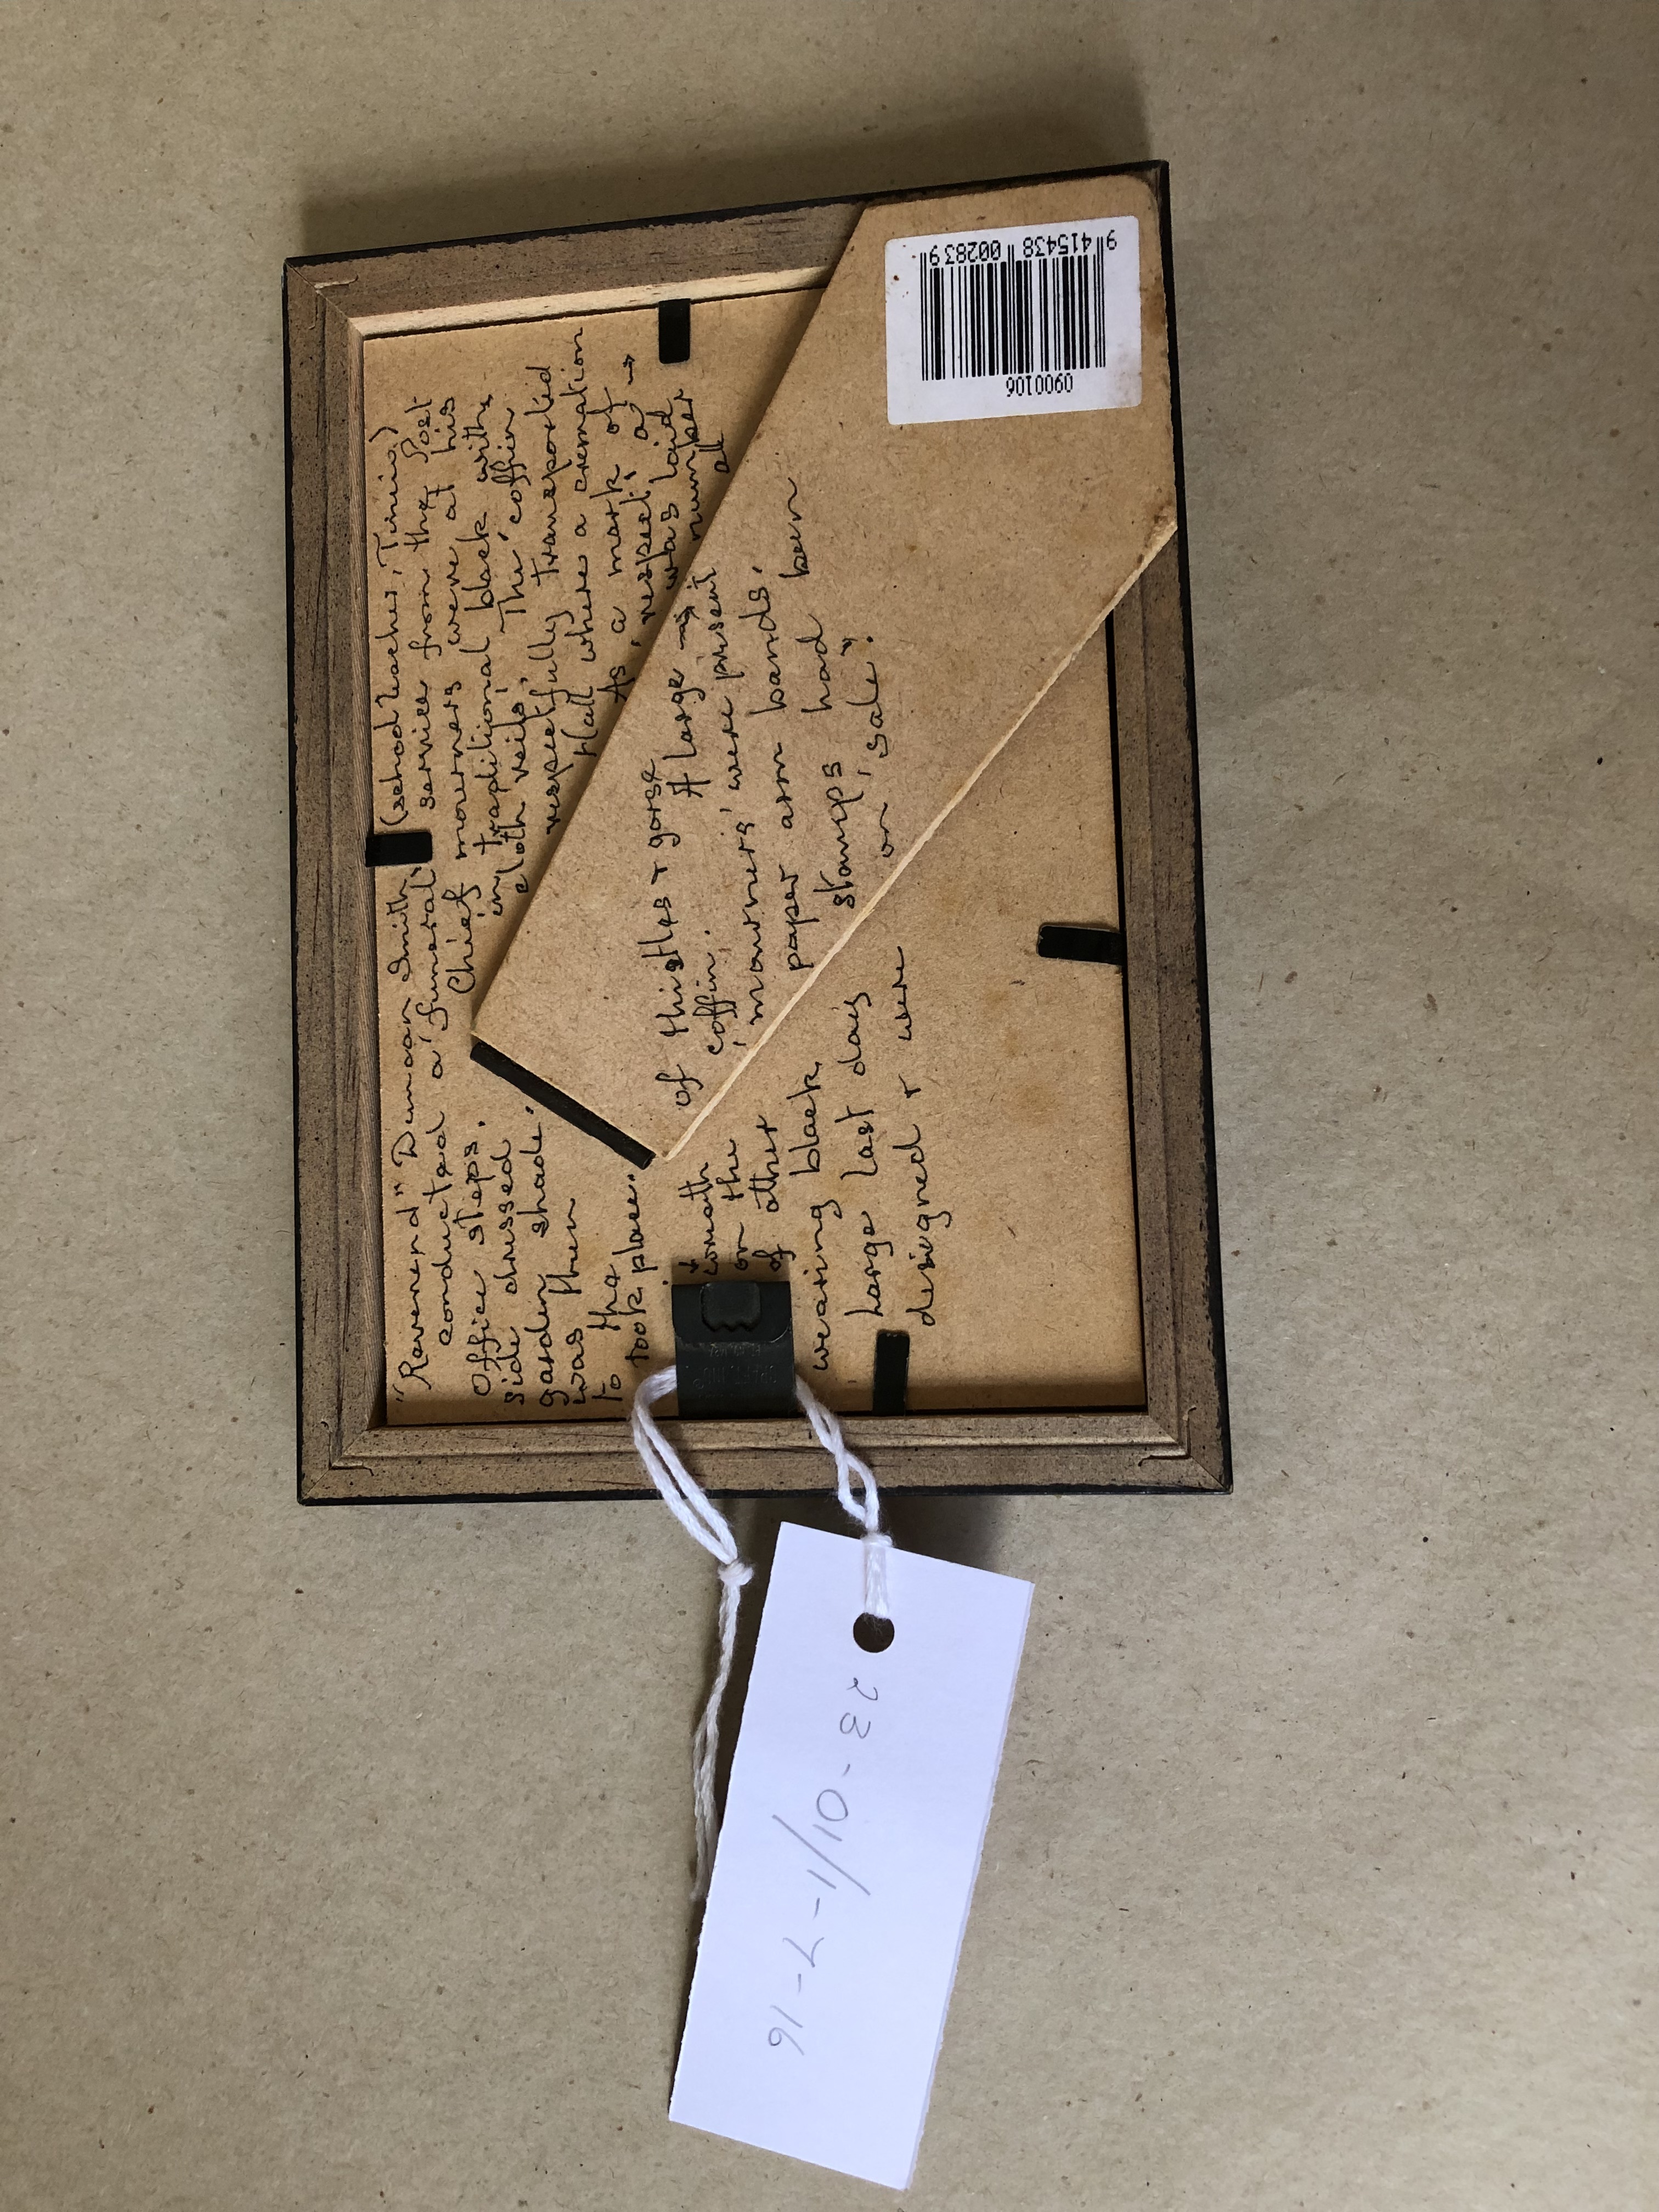 "Reverend" Duncan Smith (school teacher, Tiniroto)
conducted a 'funeral' service from the Post
Office steps. Chief mourners were at his
side dressed in traditional black with
garden shade cloth 'veils'. The 'coffin'
was then respectfully transported
to the Hall where a cremation
took place. As a mark of
'respect' a →
wreath of thistles + gorse was laid
on the coffin. A large → number
of other 'mourners' were present all
wearing black paper arm bands.
Large last day stamps had been
designed + were on 'sale'!
23-01/1-7-16
0900106
9 415438 002839